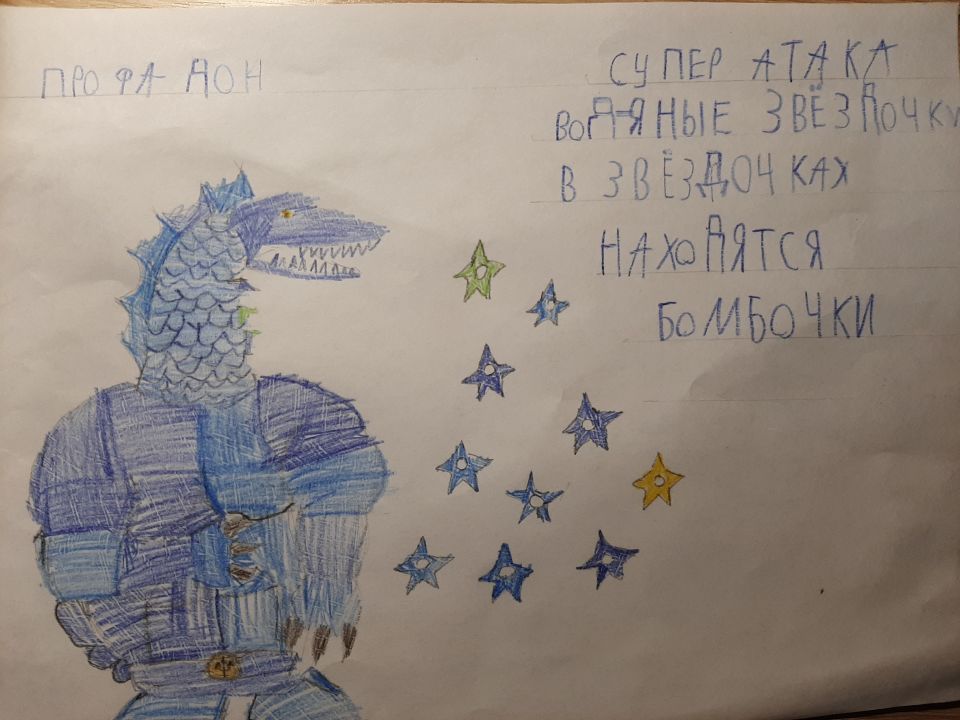 ПРОФА ДОН
СУПЕР АТАКА
ВОДЯНЫЕ ЗВЁЗДОЧКИ
В ЗВЁЗДОЧКАХ
НАХОДЯТСЯ
БОМБОЧКИ